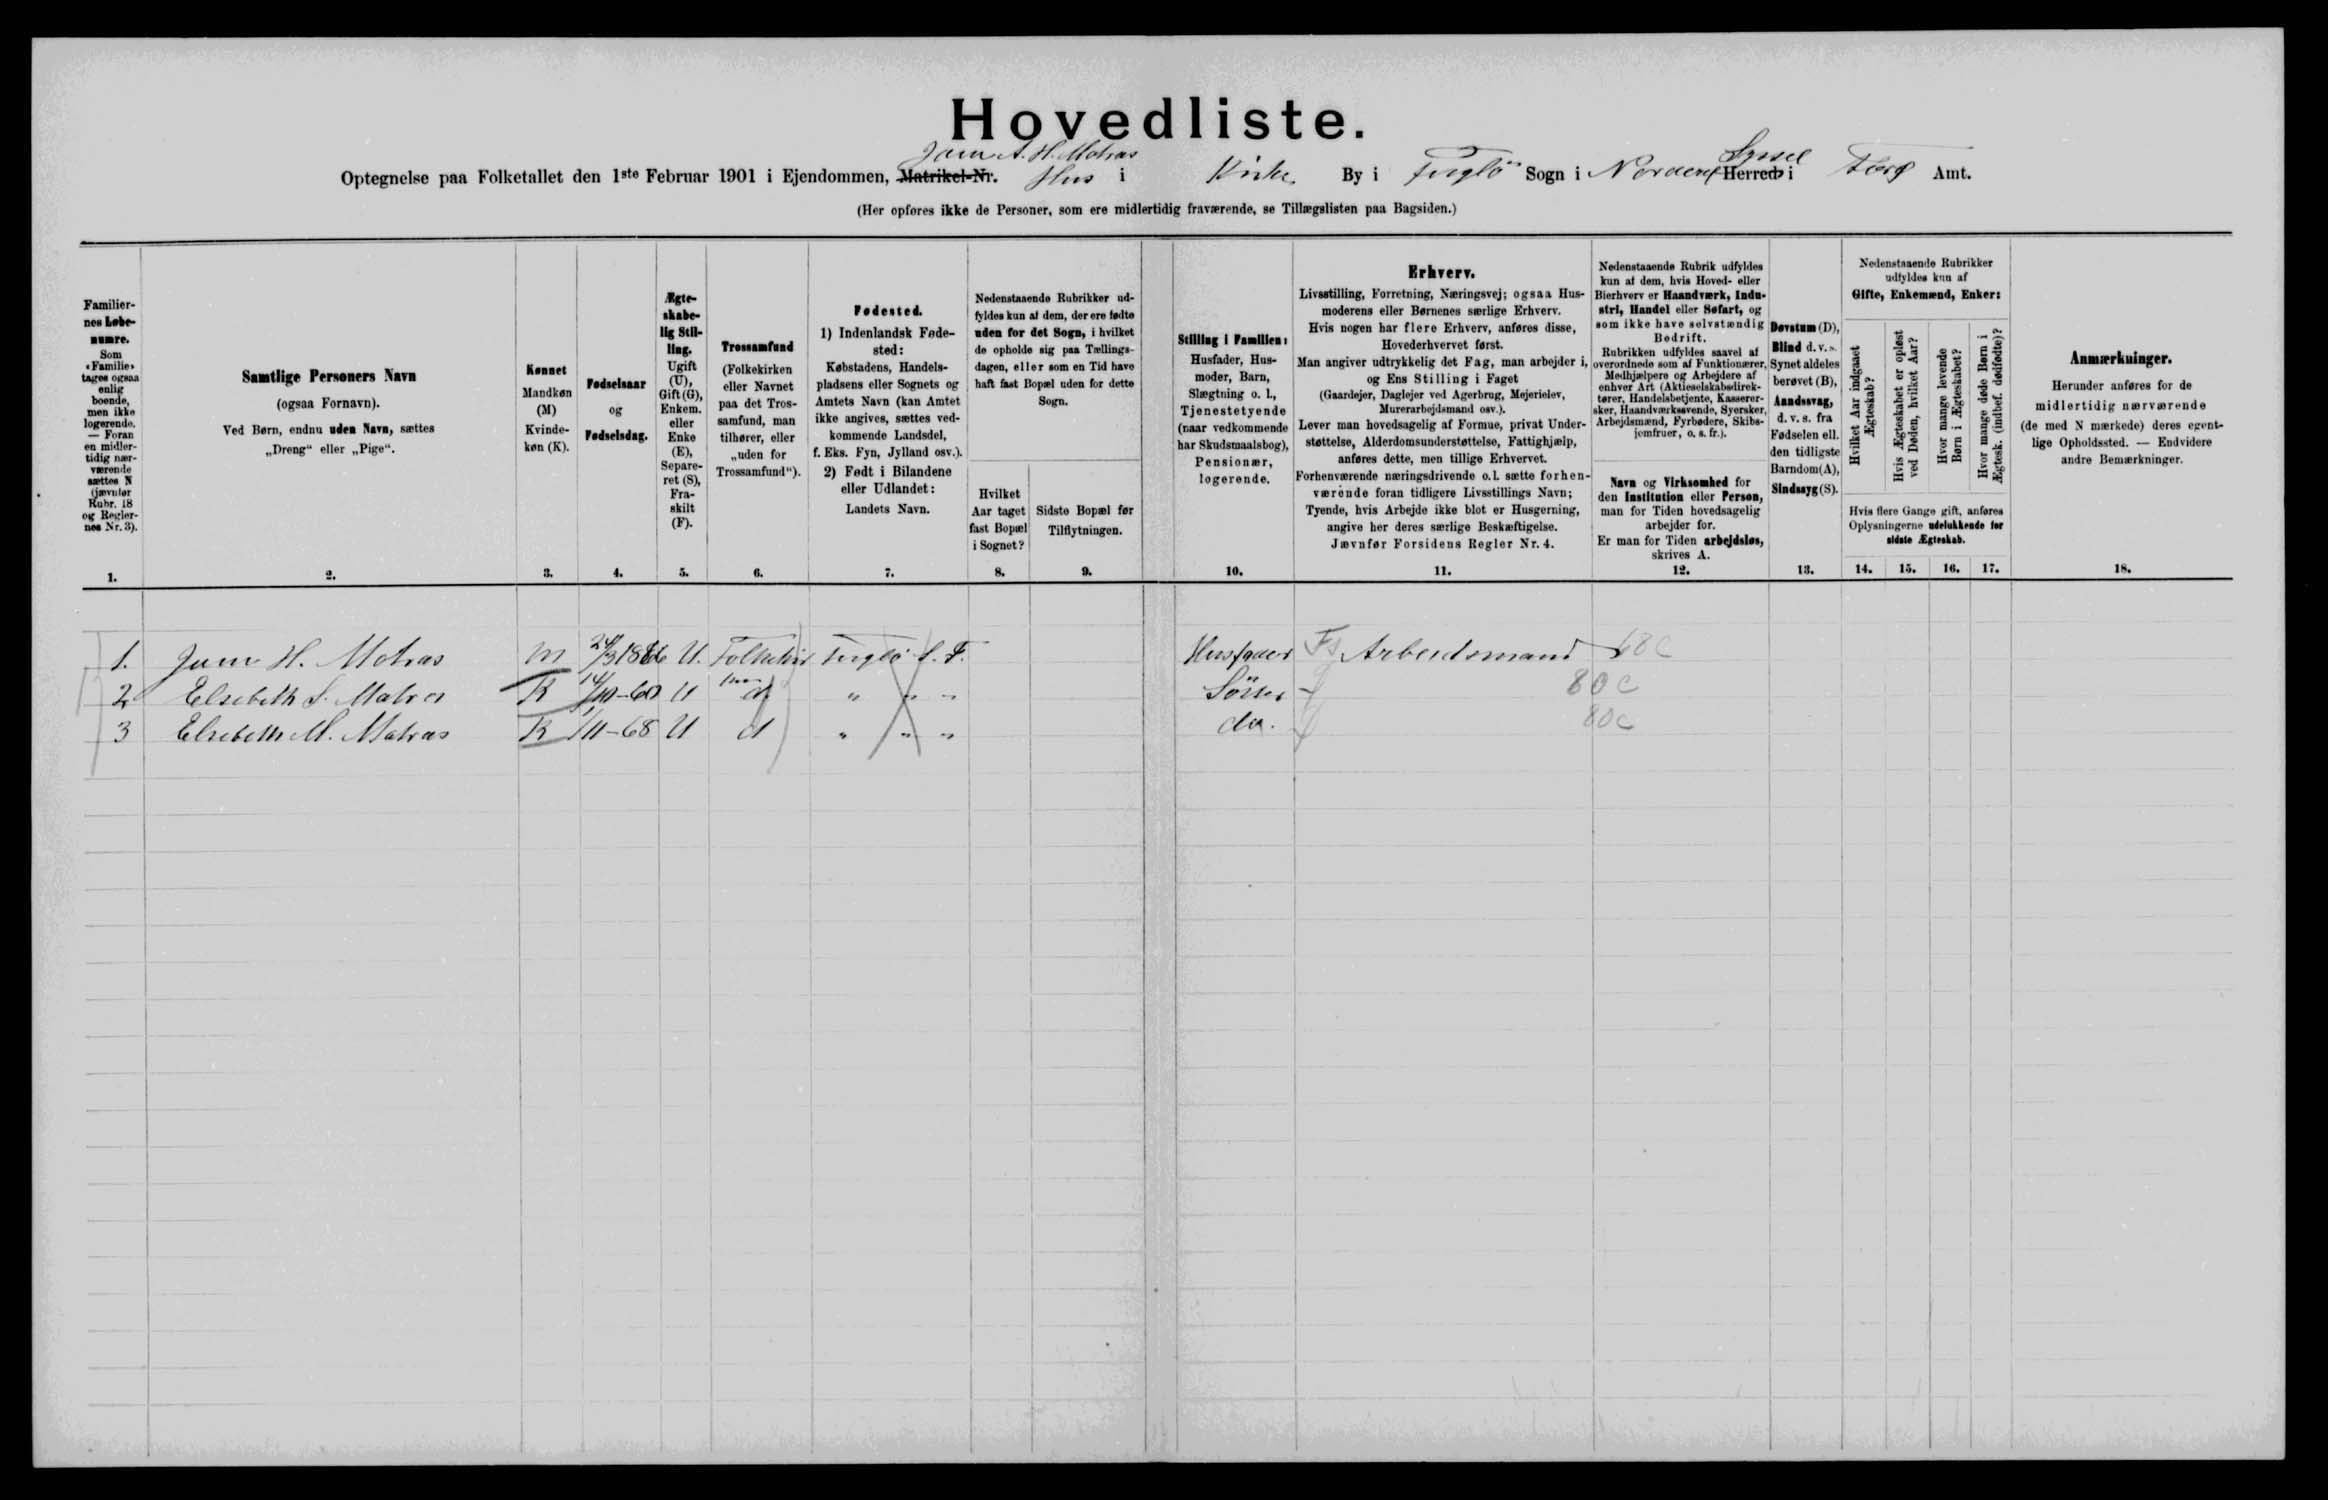 Hovedliste.
Optegnelse paa Folketallet den 1ste Februar 1901 i Ejendommen, Matrikel-Nr. Hus i Kirke By i Fuglö Sogn i Norderø Herred i Syssel Færø Amt.
(Her opføres ikke de Personer, som ere midlertidig fraværende, se Tillægslisten paa Bagsiden.)
Familier-
nes Løbe-
numre.
Som
«Familie»
tages ogsaa
enlig
boende,
men ikke
logerende.
— Foran
en midler-
tidig nær-
værende
sættes N
(jævnfør
Rubr. 18
og Regler-
nes Nr. 3).
1.
Samtlige Personers Navn
(ogsaa Fornavn).
Ved Børn, endnu uden Navn, sættes
„Dreng“ eller „Pige“.
2.
Kønnet
Mandkøn
(M)
Kvinde-
køn (K).
3.
Fødselsaar
og
Fødselsdag.
4.
Ægte-
skabe-
lig Stil-
ling.
Ugift
(U),
Gift (G),
Enkem.
eller
Enke
(E),
Separe-
ret (S),
Fra-
skilt
(F).
5.
Trossamfund
(Folkekirken
eller Navnet
paa det Tros-
samfund, man
tilhører, eller
„uden for
Trossamfund“).
6.
Fødested.
1) Indenlandsk Føde-
sted:
Købstadens, Handels-
pladsens eller Sognets og
Amtets Navn (kan Amtet
ikke angives, sættes ved-
kommende Landsdel,
f. Eks. Fyn, Jylland osv.).
2) Født i Bilandene
eller Udlandet:
Landets Navn.
7.
Nedenstaaende Rubrikker ud-
fyldes kun af dem, der ere fødte
uden for det Sogn, i hvilket
de opholde sig paa Tællings-
dagen, eller som en Tid have
haft fast Bopæl uden for dette
Sogn.
Hvilket
Aar taget
fast Bopæl
i Sognet?
8.
Sidste Bopæl før
Tilflytningen.
9.
Stilling i Familien:
Husfader, Hus-
moder, Barn,
Slægtning o. l.,
Tjenestetyende
(naar vedkommende
har Skudsmaalsbog),
Pensionær,
logerende.
10.
Erhverv.
Livsstilling, Forretning, Næringsvej; ogsaa Hus-
moderens eller Børnenes særlige Erhverv.
Hvis nogen har flere Erhverv, anføres disse,
Hovederhvervet først.
Man angiver udtrykkelig det Fag, man arbejder i,
og Ens Stilling i Faget
(Gaardejer, Daglejer ved Agerbrug, Mejerielev,
Murerarbejdsmand osv.).
Lever man hovedsagelig af Formue, privat Under-
støttelse, Alderdomsunderstøttelse, Fattighjælp,
anføres dette, men tillige Erhvervet.
Forhenværende næringsdrivende o. l. sætte forhen-
værende foran tidligere Livsstillings Navn;
Tyende, hvis Arbejde ikke blot er Husgerning,
angive her deres særlige Beskæftigelse.
Jævnfør Forsidens Regler Nr. 4.
11.
Nedenstaaende Rubrik udfyldes
kun af dem, hvis Hoved- eller
Bierhverv er Haandværk, Indu-
stri, Handel eller Søfart, og
som ikke have selvstændig
Bedrift.
Rubrikken udfyldes saavel af
overordnede som af Funktionærer,
Medhjælpere og Arbejdere af
enhver Art (Aktieselskabsdirek-
tører, Handelsbetjente, Kasserer-
sker, Haandværkssvende, Syersker,
Arbejdsmænd, Fyrbødere, Skibs-
jomfruer, o. s. fr.).
Navn og Virksomhed for
den Institution eller Person,
man for Tiden hovedsagelig
arbejder for.
Er man for Tiden arbejdsløs,
skrives A.
12.
Døvstum (D),
Blind d. v. s.
Synet aldeles
berøvet (B),
Aandssvag,
d. v. s. fra
Fødselen ell.
den tidligste
Barndom (A),
Sindssyg (S).
13.
Nedenstaaende Rubrikker
udfyldes kun af
Gifte, Enkemænd, Enker:
Hvilket Aar indgaaet
Ægteskab?
Hvis Ægteskabet er opløst
ved Døden, hvilket Aar?
Hvor mange levende
Børn i Ægteskabet?
Hvor mange døde Børn i
Ægtesk. (indbef. dødfødte)?
Hvis flere Gange gift, anføres
Oplysningerne udelukkende for
sidste Ægteskab.
14. 15. 16. 17.
Anmærkninger.
Herunder anføres for de
midlertidig nærværende
(de med N mærkede) deres egent-
lige Opholdssted. — Endvidere
andre Bemærkninger.
18.
1. H. Matras M U. Fuglö S. F. Husfader Arbeidsmand 68 C
2 Elsebeth S. Matras K -60 U d " " " Söster 80 C
3 Elsebeth M. Matras K 1/11-68 U d " " " do. 80 C